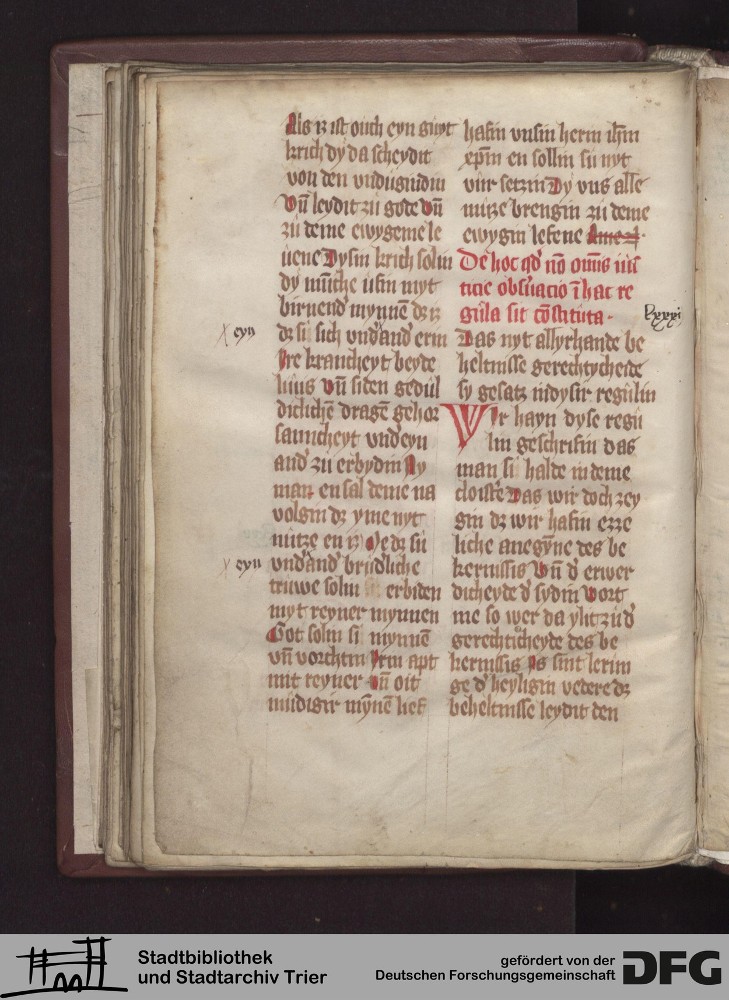 Als iz ist ouch eyn guyt
krich dy da scheydit
von den vndugindin
Vn̄ leydit zu gode Vn̄
zu deme ewygeme le
uene Dysin krich soln
dy mūche ufin myt
birnend' mynnē dz iz
dz si sich vnd'and' erin
Jre krancheyt beyde
liuis vn̄ siden gedul
diclichē dragē gehor
saincheyt vnd'eyn
and' zu erbydin Ny
man en sal deme na
volgin dz yme nyt
nutze en iz Me dz su
vnd'and' brud'liche
truwe soln erbiden
myt reyner mynnen
Got soln si mynnē
vn̄ vorchtin Irin apt
mit reyner vn̄ oit
mudigir mȳnē lief
x eyn
x eyn
hafin vnsin herin ihm̄
xpm̄ en sollin su nyt
vur setzin Dy vns alle
mitze brengin zu deme
ewygin lefene Amen
De hoc qd' nō om̄is ius
ticie obs'uacio ī hac re
gula sit cōstituta.
lxxxi
Das nyt allyrhande be
heltnisse gerechtycheide
sy gesatz in dysir regulin
Wir hayn dyse regu
lin geschrifin das
man si halde in deme
cloistē Das wir doch zey
gin dz wir hafin ezze
liche anegȳne des be
kernissis Vn̄ d' erwer
dicheyde d' sydin Vort
me so wer da ylit zu d'
gerechticheyde des be
kernissis Is sint lerin
ge d' heyligin vedere dz
beheltnisse leydit den
Stadtbibliothek
und Stadtarchiv Trier
gefördert von der
Deutschen Forschungsgemeinschaft
DFG